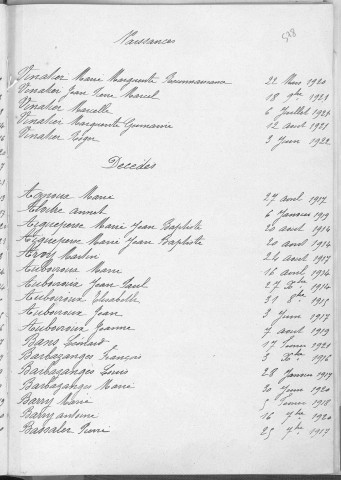 Naissances
Vinatier Marie Marguerite 22 Mars 1920
Vinatier Jean René Marcel 18 9bre 1921
Vinatier Marcelle 6 Juillet 1921
Vinatier Marguerite Germaine 12 août 1921
Vinatier Roger 3 Juin 1922
Décédés
Marie 27 avril 1917
annet 6 Janvier 1919
Aigueperse Marie Jean Baptiste 20 avril 1914
Aigueperse Marie Jean Baptiste 20 avril 1914
Martin 24 avril 1917
Auboiroux Marie 16 avril 1914
Auboiroux Jean Paul 27 Xbre 1914
Auboiroux Elisabeth 31 8bre 1915
Auboiroux Jean 3 Juin 1917
Auboiroux Jeanne 7 août 1919
Bans Léonard 17 1921
Barbazanges François 3 Xbre 1916
Barbazanges Louis 28 Janvier 1917
Barbazanges Marie 30 Juin 1920
Barry Marie 5 Février 1918
Barry antoine 16 7bre 1920
Bassaler Pierre 25 7bre 1917